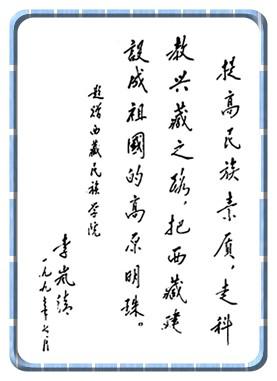 提高民族素质，走科
教兴藏之路，把西藏建
設成祖國的高原明珠。
题赠西藏民族学院
李岚清
一九九七年七月